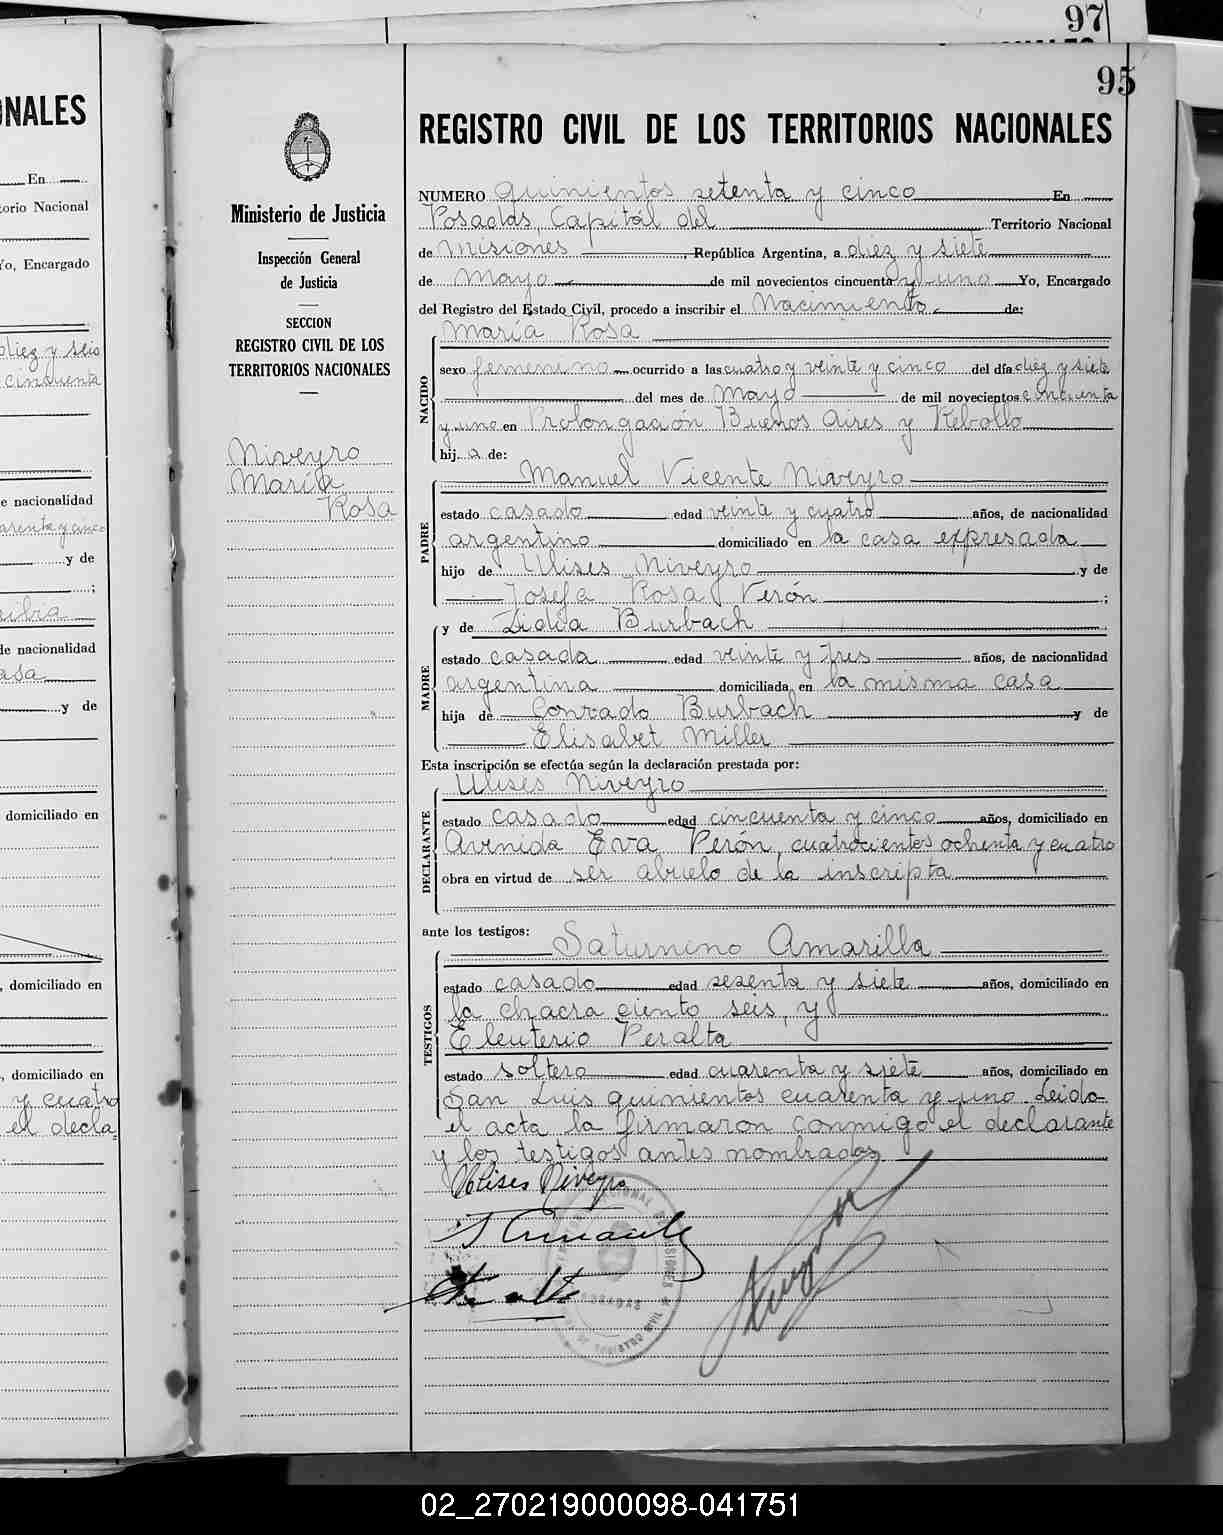 97
95
NALES
En
torio Nacional
Yo, Encargado
diez y seis
cincuenta
e nacionalidad
arenta y cinco
y de
;
de nacionalidad
asa
y de
domiciliado en
, domiciliado en
, domiciliado en
y cuatro
el decla-
Ministerio de Justicia
Inspección General
de Justicia
SECCION
REGISTRO CIVIL DE LOS
TERRITORIOS NACIONALES
Niveyro
María
Rosa
REGISTRO CIVIL DE LOS TERRITORIOS NACIONALES
NUMERO quinientos setenta y cinco En
Posadas, Capital del Territorio Nacional
de Misiones, República Argentina, a diez y siete
de Mayo de mil novecientos cincuenta y uno Yo, Encargado
del Registro del Estado Civil, procedo a inscribir el Nacimiento de:
NACIDO
María Rosa
sexo femenino ocurrido a las cuatro y veinte y cinco del día diez y siete
del mes de Mayo de mil novecientos cincuenta
y uno en Prolongación Buenos Aires y Rebollo
hij a de:
PADRE
Manuel Vicente Niveyro
estado casado edad veinte y cuatro años, de nacionalidad
argentino domiciliado en la casa expresada
hijo de Ulises Niveyro y de
Josefa Rosa Verón ;
MADRE
y de Lidia Burbach
estado casada edad veinte y tres años, de nacionalidad
argentina domiciliada en la misma casa
hija de Conrado Burbach y de
Elisabet Miller
Esta inscripción se efectúa según la declaración prestada por:
DECLARANTE
Ulises Niveyro
estado casado edad cincuenta y cinco años, domiciliado en
Avenida Eva Perón, cuatrocientos ochenta y cuatro
obra en virtud de ser abuelo de la inscripta
ante los testigos:
TESTIGOS
Saturnino Amarilla
estado casado edad sesenta y siete años, domiciliado en
la chacra ciento seis, y
Eleuterio Peralta
estado soltero edad cuarenta y siete años, domiciliado en
San Luis quinientos cuarenta y uno. Leida
el acta la firmaron conmigo el declarante
y los testigos antes nombrados
Ulises Niveyro
02_270219000098-041751